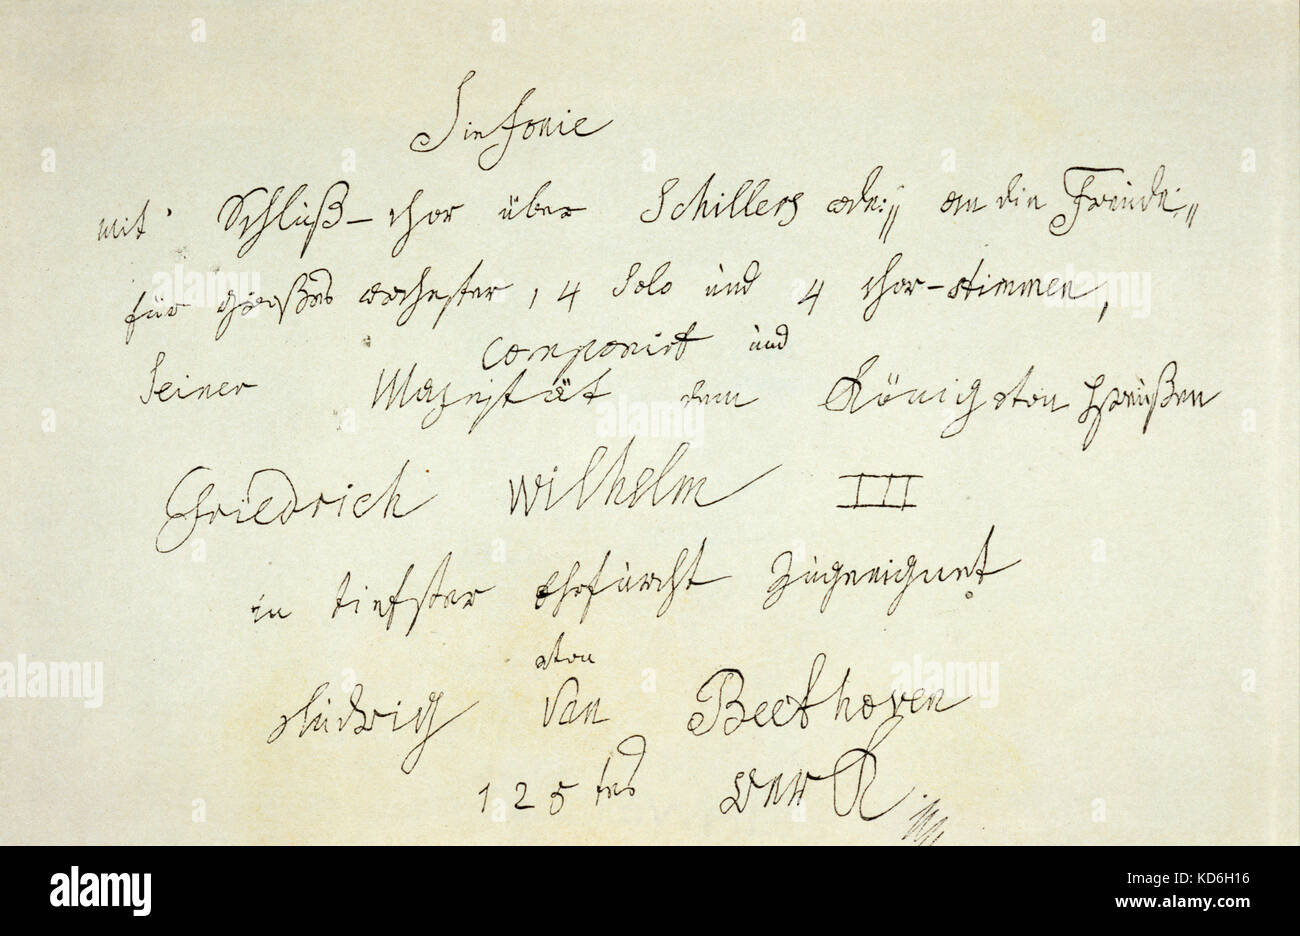 Sinfonie
mit Schluß-chor über Schillers ode:" an die Freude:"
für großes orchester, 4 Solo und 4 chor-stimmen,
componirt und
Seiner Majestät dem König von Preußen
Friedrich Wilhelm III
in tiefster Ehrfurcht zugeeignet
von
Ludwig van Beethoven
125tes Werk
alamy
Image ID: KD6H16
www.alamy.com